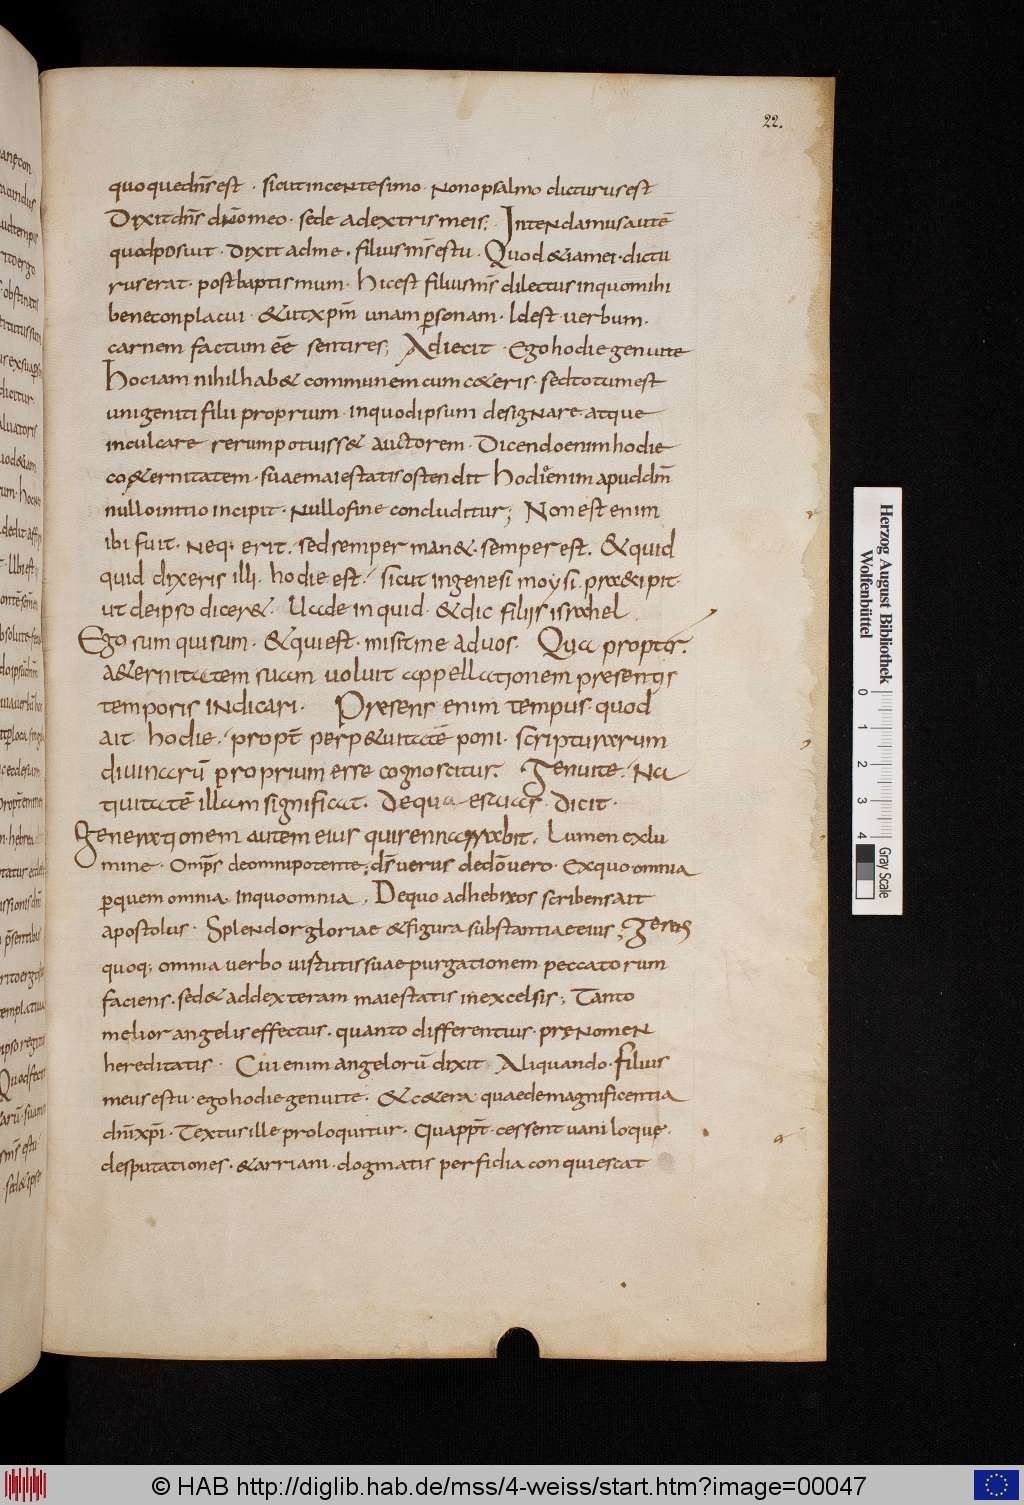 22.
quoquedn̄s est · sicut incentesimo · nono psalmo dicturus est
Dixit dn̄s dn̄o meo · sede adextris meis; Intendamus autē
quod posuit · dixit ad me · filius m̄s es tu · Quod &iam ei · dictu
rus erat · post baptismum · Hic est filius m̄s dilectus in quo mihi
bene conplacui · & ut xp̄m unam personam · Id est uerbum ·
carnem factum eē sentires; Adiecit · Ego hodie genui te
Hoc iam nihil hab& communem cum c&eris · sed totum est
unigeniti filii proprium · in quod ipsum designare atque
inculcare rerum potuiss& auctorem · Dicendo enim hodie
co&ernitatem · suae maiestatis ostendit Hodie enim apud dm̄
nullo initio incipit · Nullo fine concluditur; Non est enim
ibi fuit · Neq; erit · sed semper man& · semper est · & quid
quid dixeris illi · hodie est · sicut in genesi moysi · praecipit ·
ut de ipso dicer& · Uade inquid · & dic filiis israhel ·
Ego sum qui sum · & qui est · misit me ad uos · Qua propter ·
a&ernitatem suam uoluit appellationem presentis
temporis indicari · Presens enim tempus quod
ait hodie · propt̄ perp&uitatē poni · scripturarum
diuinarū proprium esse cognoscitur · Genui te · Na
tiuitatē illam significat · De qua esaias dicit ·
Generationem autem eius quis ennarrabit · Lumen ex lu
mine · Omp̄s de omnipotente; ds̄ uerus de dō uero · Ex quo omnia
perquem omnia · in quo omnia · De quo ad hebraeos scribens ait
apostolus · Splendor gloriae & figura substantiae eius; Gerens
quoq; omnia uerbo uirtutis suae purgationem peccatorum
faciens · sed& ad dexteram maiestatis in excelsis; Tanto
melior angelis effectus · quanto differentius · prę nomen
hereditatis · Cui enim angelorū dixit Aliquando · filius
meus es tu · ego hodie genui te · & c&era · quae de magnificentia
dn̄i xp̄i · Textus ille proloquitur · Quappt̄ · cessent uani loquę ·
desputationes · & arriani · dogmatis perfidia conquiescat
Herzog August Bibliothek
Wolfenbüttel
0 1 2 3 4
Gray Scale
© HAB http://diglib.hab.de/mss/4-weiss/start.htm?image=00047